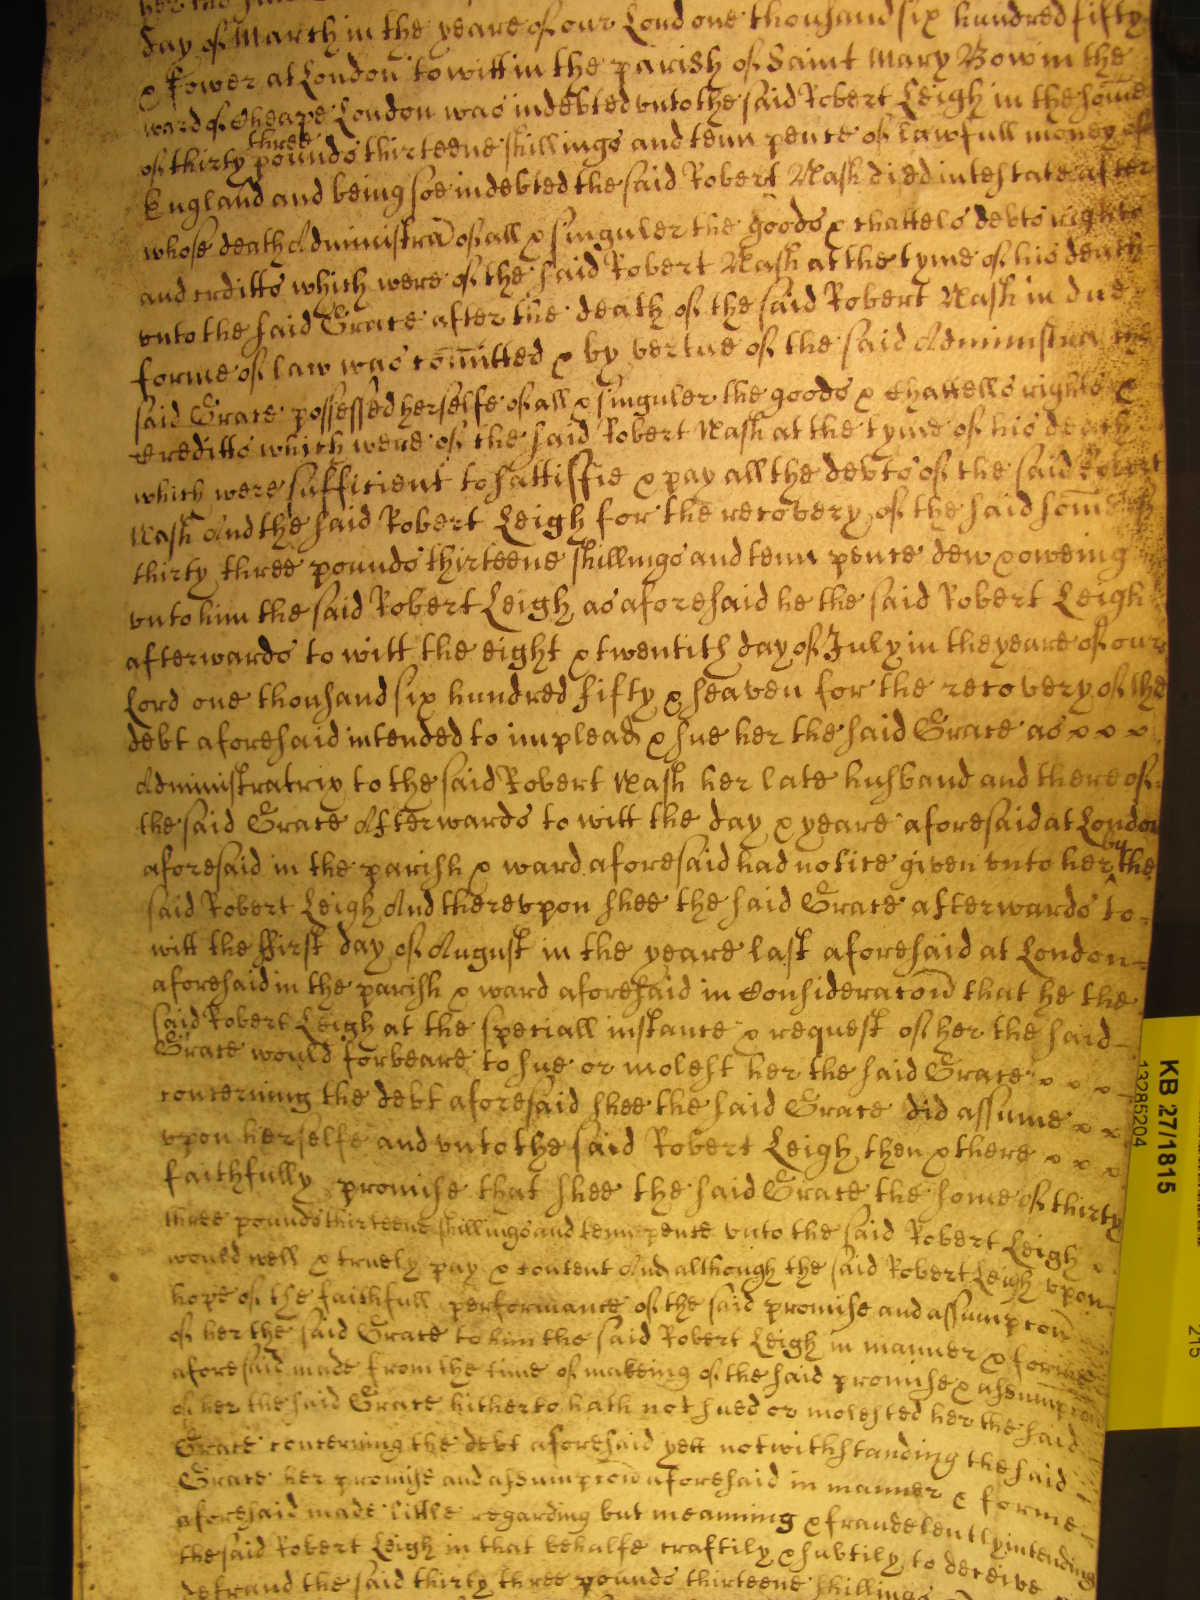 day of March in the yeare of our Lord one thousand six hundred fifty
& fower at London to witt in the parish of Saint Mary Bow in the
ward of Cheape London was indebted vnto the said Robert Leigh in the some
of thirty three pounds thirteene shillings and tenn pence of lawfull money of
England and being soe indebted the said Robert Nash died intestate after
whose death Administra͠con of all & singuler the goods & chattels debts rights
and creditts which were of the said Robert Nash at the tyme of his death
vnto the said Grace after the death of the said Robert Nash in due
forme of law was com̅itted & by vertue of the said Administra the
said Grace possessed herselfe of all & singuler the goods & Chattells rights &
Creditts which were of the said Robert Nash at the tyme of his death
which were sufficient to sattisfie & pay all the debts of the said Robert
Nash And the said Robert Leigh for the recovery of the said som̅e of
thirty three pounds thirteene shillings and tenn pence dew & oweing
vnto him the said Robert Leigh as aforesaid he the said Robert Leigh
afterwards to witt the eight & twentith day of July in the yeare of our
Lord one thousand six hundred fifty & seaven for the recovery of the
debt aforesaid intended to implead & sue her the said Grace as
Administratrix to the said Robert Nash her late husband and there of
the said Grace Afterwards to witt the day & yeare aforesaid at London
aforesaid in the parish & ward aforesaid had notice given vnto her by the
said Robert Leigh And therevpon shee the said Grace afterwards to
witt the ffirst day of August in the yeare last aforesaid at London
aforesaid in the parish & ward aforesaid in Consideraco͠n that he the
said Robert Leigh at the speciall instance & request of her the said
Grace would forbeare to sue or molest her the said Grace
concerning the debt aforesaid shee the said Grace did assume
vpon herselfe and vnto the said Robert Leigh then & there
faithfully promise that shee the said Grace the some of thirty
three pounds thirteene shillings and tenn pence vnto the said Robert Leigh
would well & truely pay & content And although the said Robert Leigh vpon
hope of the faithfull performance of the said promise and assumpco͠n
of her the said Grace to him the said Robert Leigh in manner & forme
aforesaid made from the time of makeing of the said promise & assumpcon
of her the said Grace hitherto hath not sued or molested her the said
Grace concerning the debt aforesaid yett notwithstanding the said
Grace her promise and assumpco͠n aforesaid in manner & forme
aforesaid made little regarding but meaning & fraudelently intending
the said Robert Leigh in that behalfe craftily & subtily to deceive
defraud the said thirty three pounds thirteene shillings
KB 27/1815
13285204
215